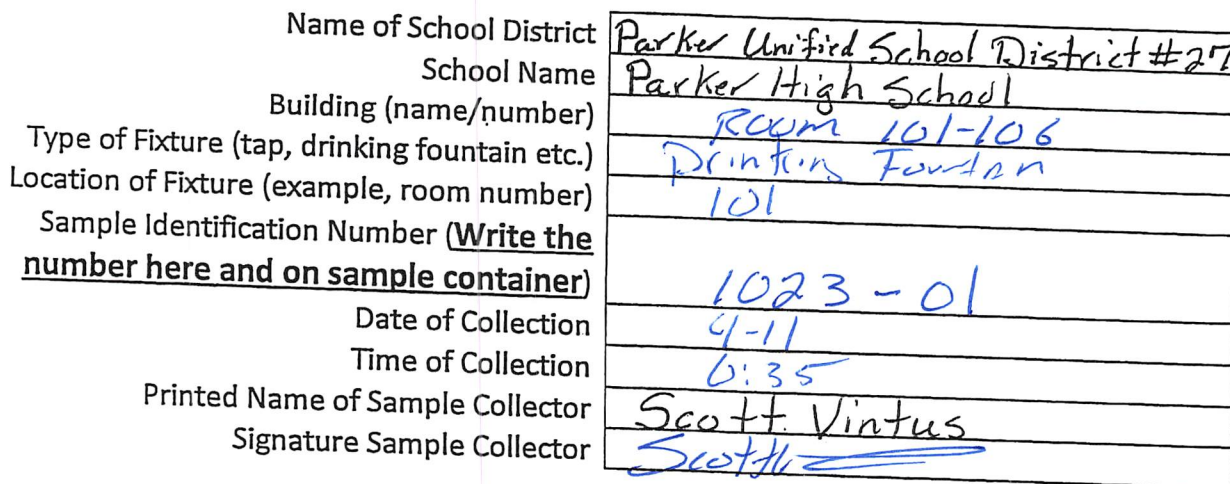 Name of School District Parker Unified School District #27
School Name Parker High School
Building (name/number) Room 101-106
Type of Fixture (tap, drinking fountain etc.) Drinking Fountan
Location of Fixture (example, room number) 101
Sample Identification Number (Write the
number here and on sample container) 1023-01
Date of Collection 4-11
Time of Collection 6:35
Printed Name of Sample Collector Scott Vintus
Signature Sample Collector Scott